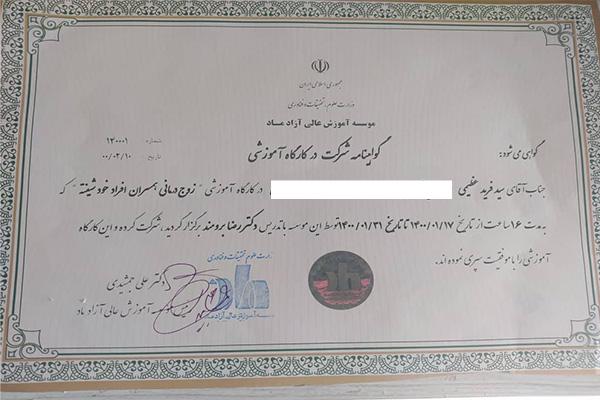 جمهوری اسلامی ایران
وزارت علوم، تحقیقات و فناوری
موسسه آموزش عالی آزاد ماد
شماره ۱۴۰۰۰۱
گواهینامه شرکت در کارگاه آموزشی
تاریخ ۰۰/۰۲/۱۰
گواهی می شود:
جناب آقای سید فرید عظیمی در کارگاه آموزشی "زوج درمانی همسران افراد خودشیفته" که
به مدت ۱۶ ساعت از تاریخ ۱۴۰۰/۰۱/۱۷ تا تاریخ ۱۴۰۰/۰۱/۳۱ توسط این موسسه با تدریس دکتر رضا برومند برگزار گردید، شرکت کرده و این کارگاه
آموزشی را با موفقیت سپری نموده اند.
وزارت علوم تحقیقات و فناوری
دکتر علی جمشیدی
رییس موسسه آموزش عالی آزاد ماد
موسسه آموزش عالی آزاد ماد